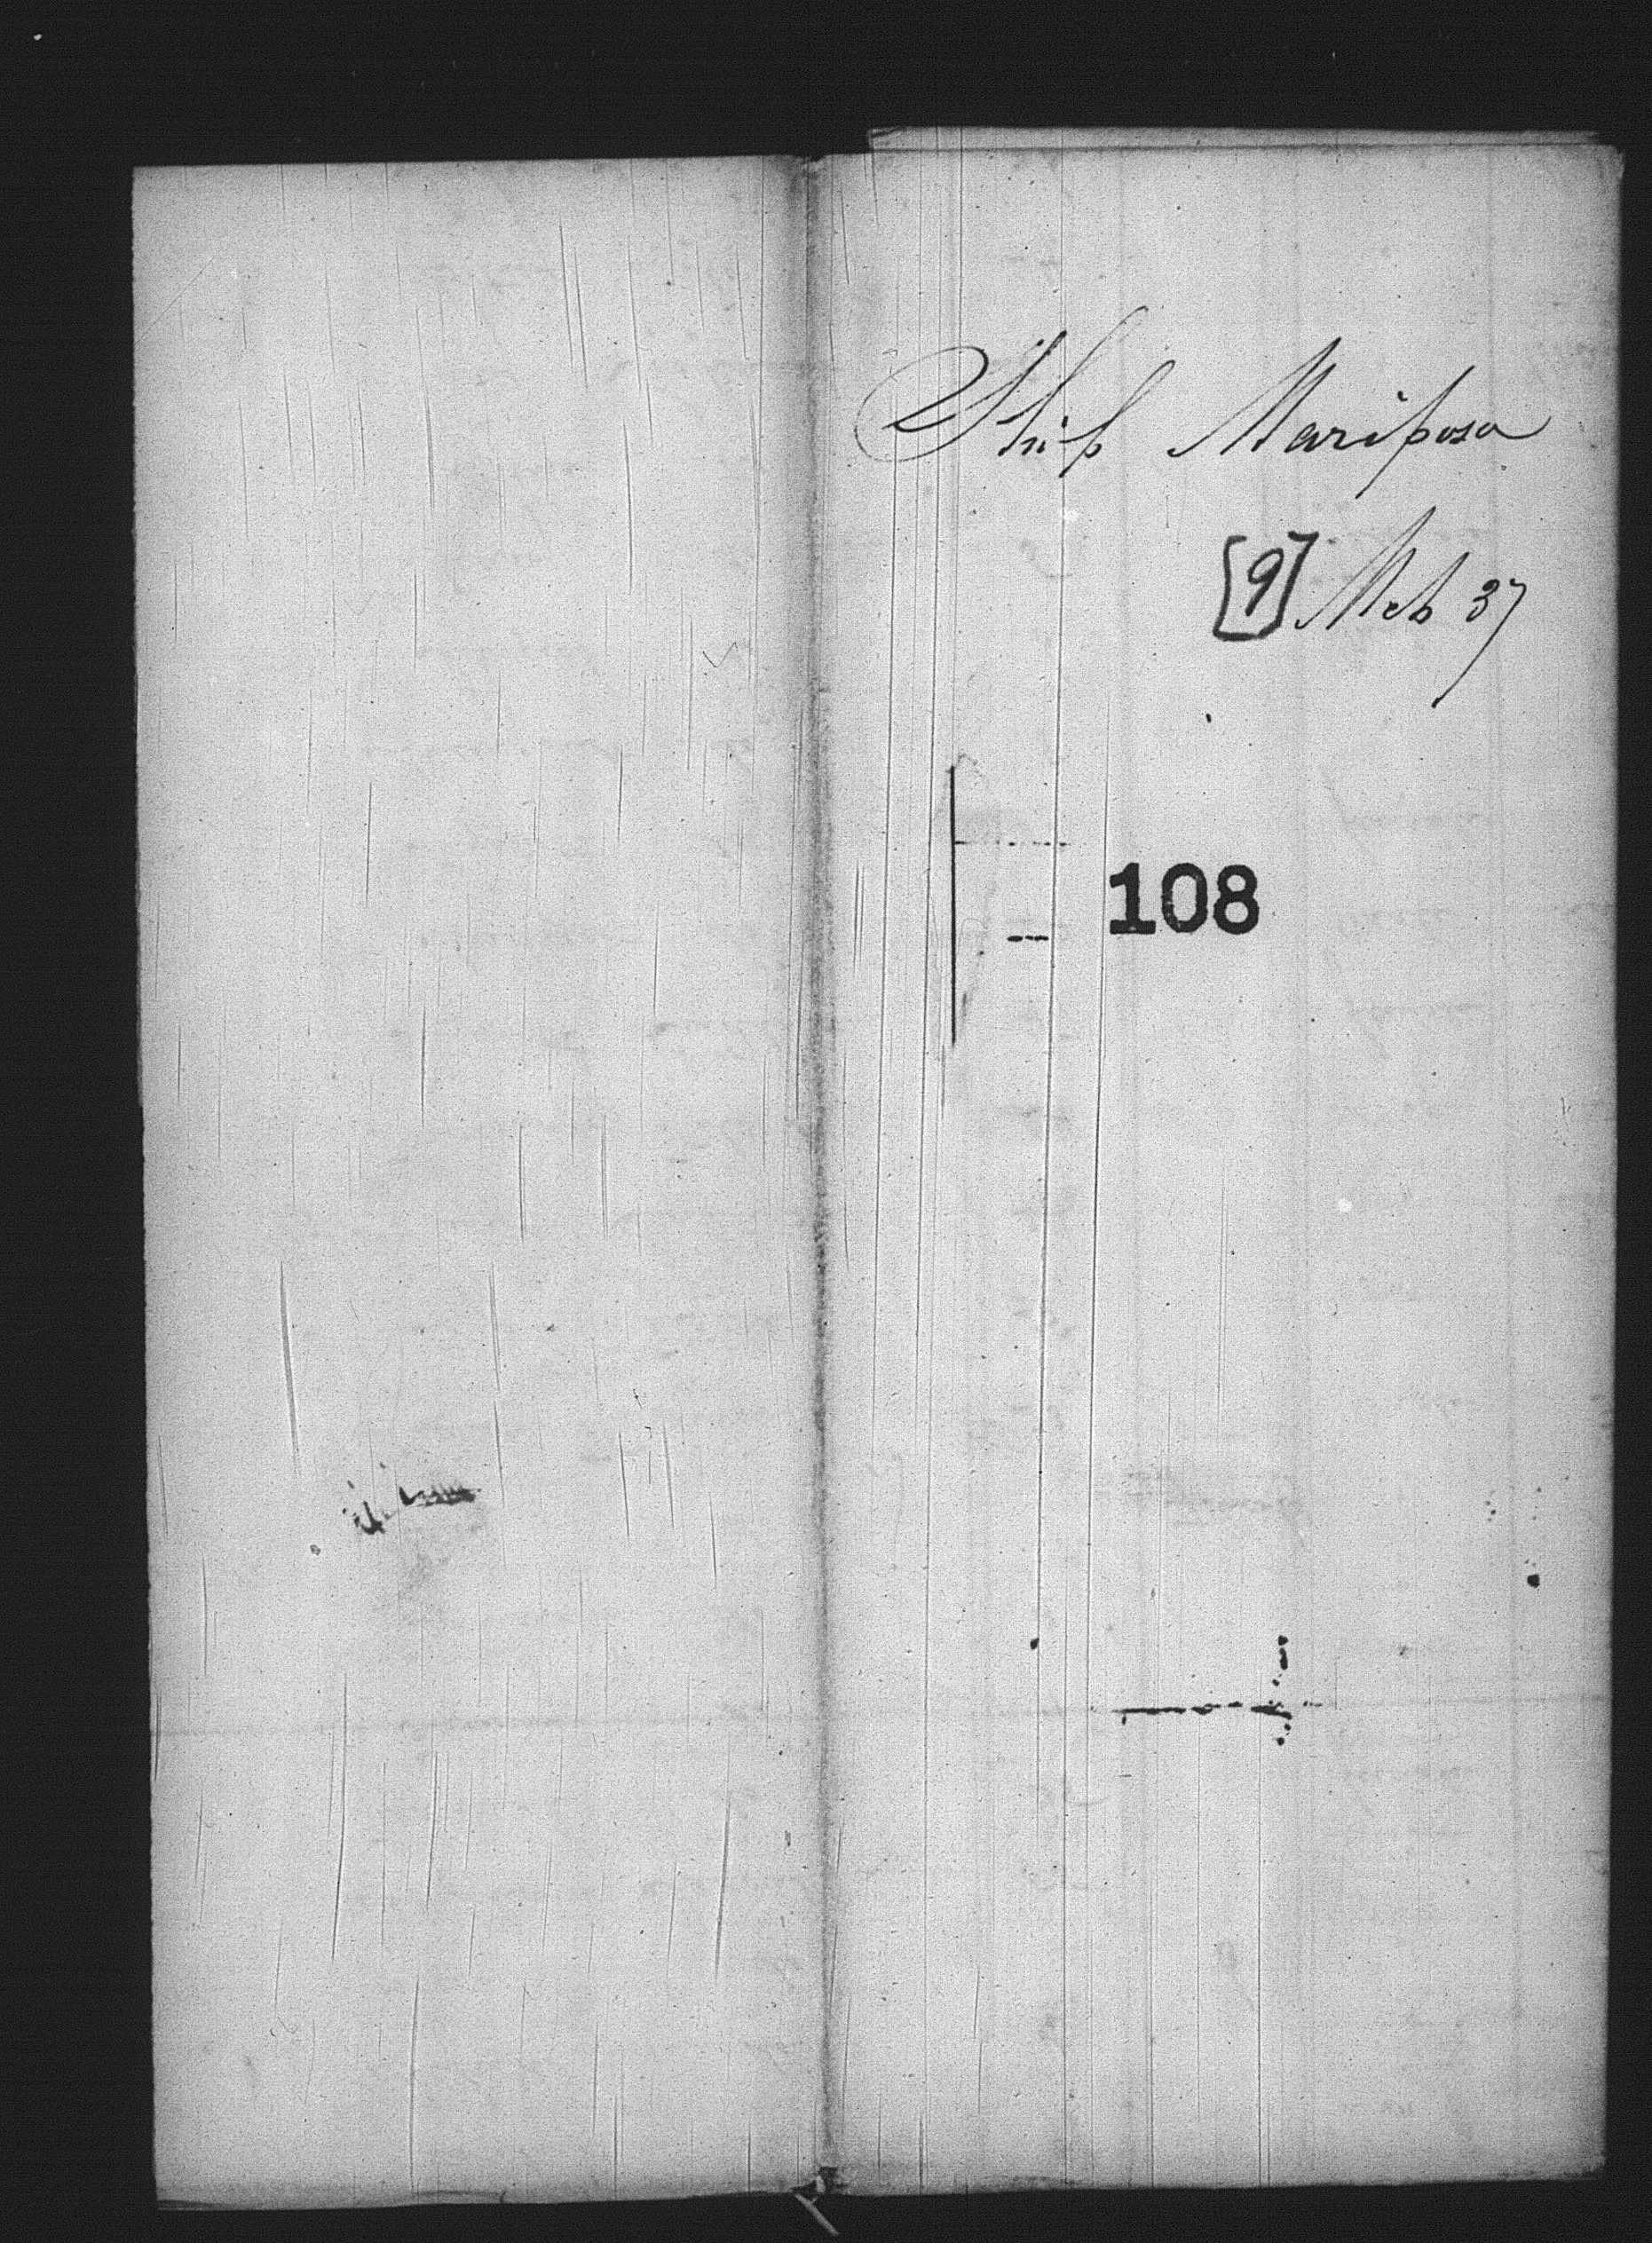 Ship Mariposa
[9] Feb 37
108